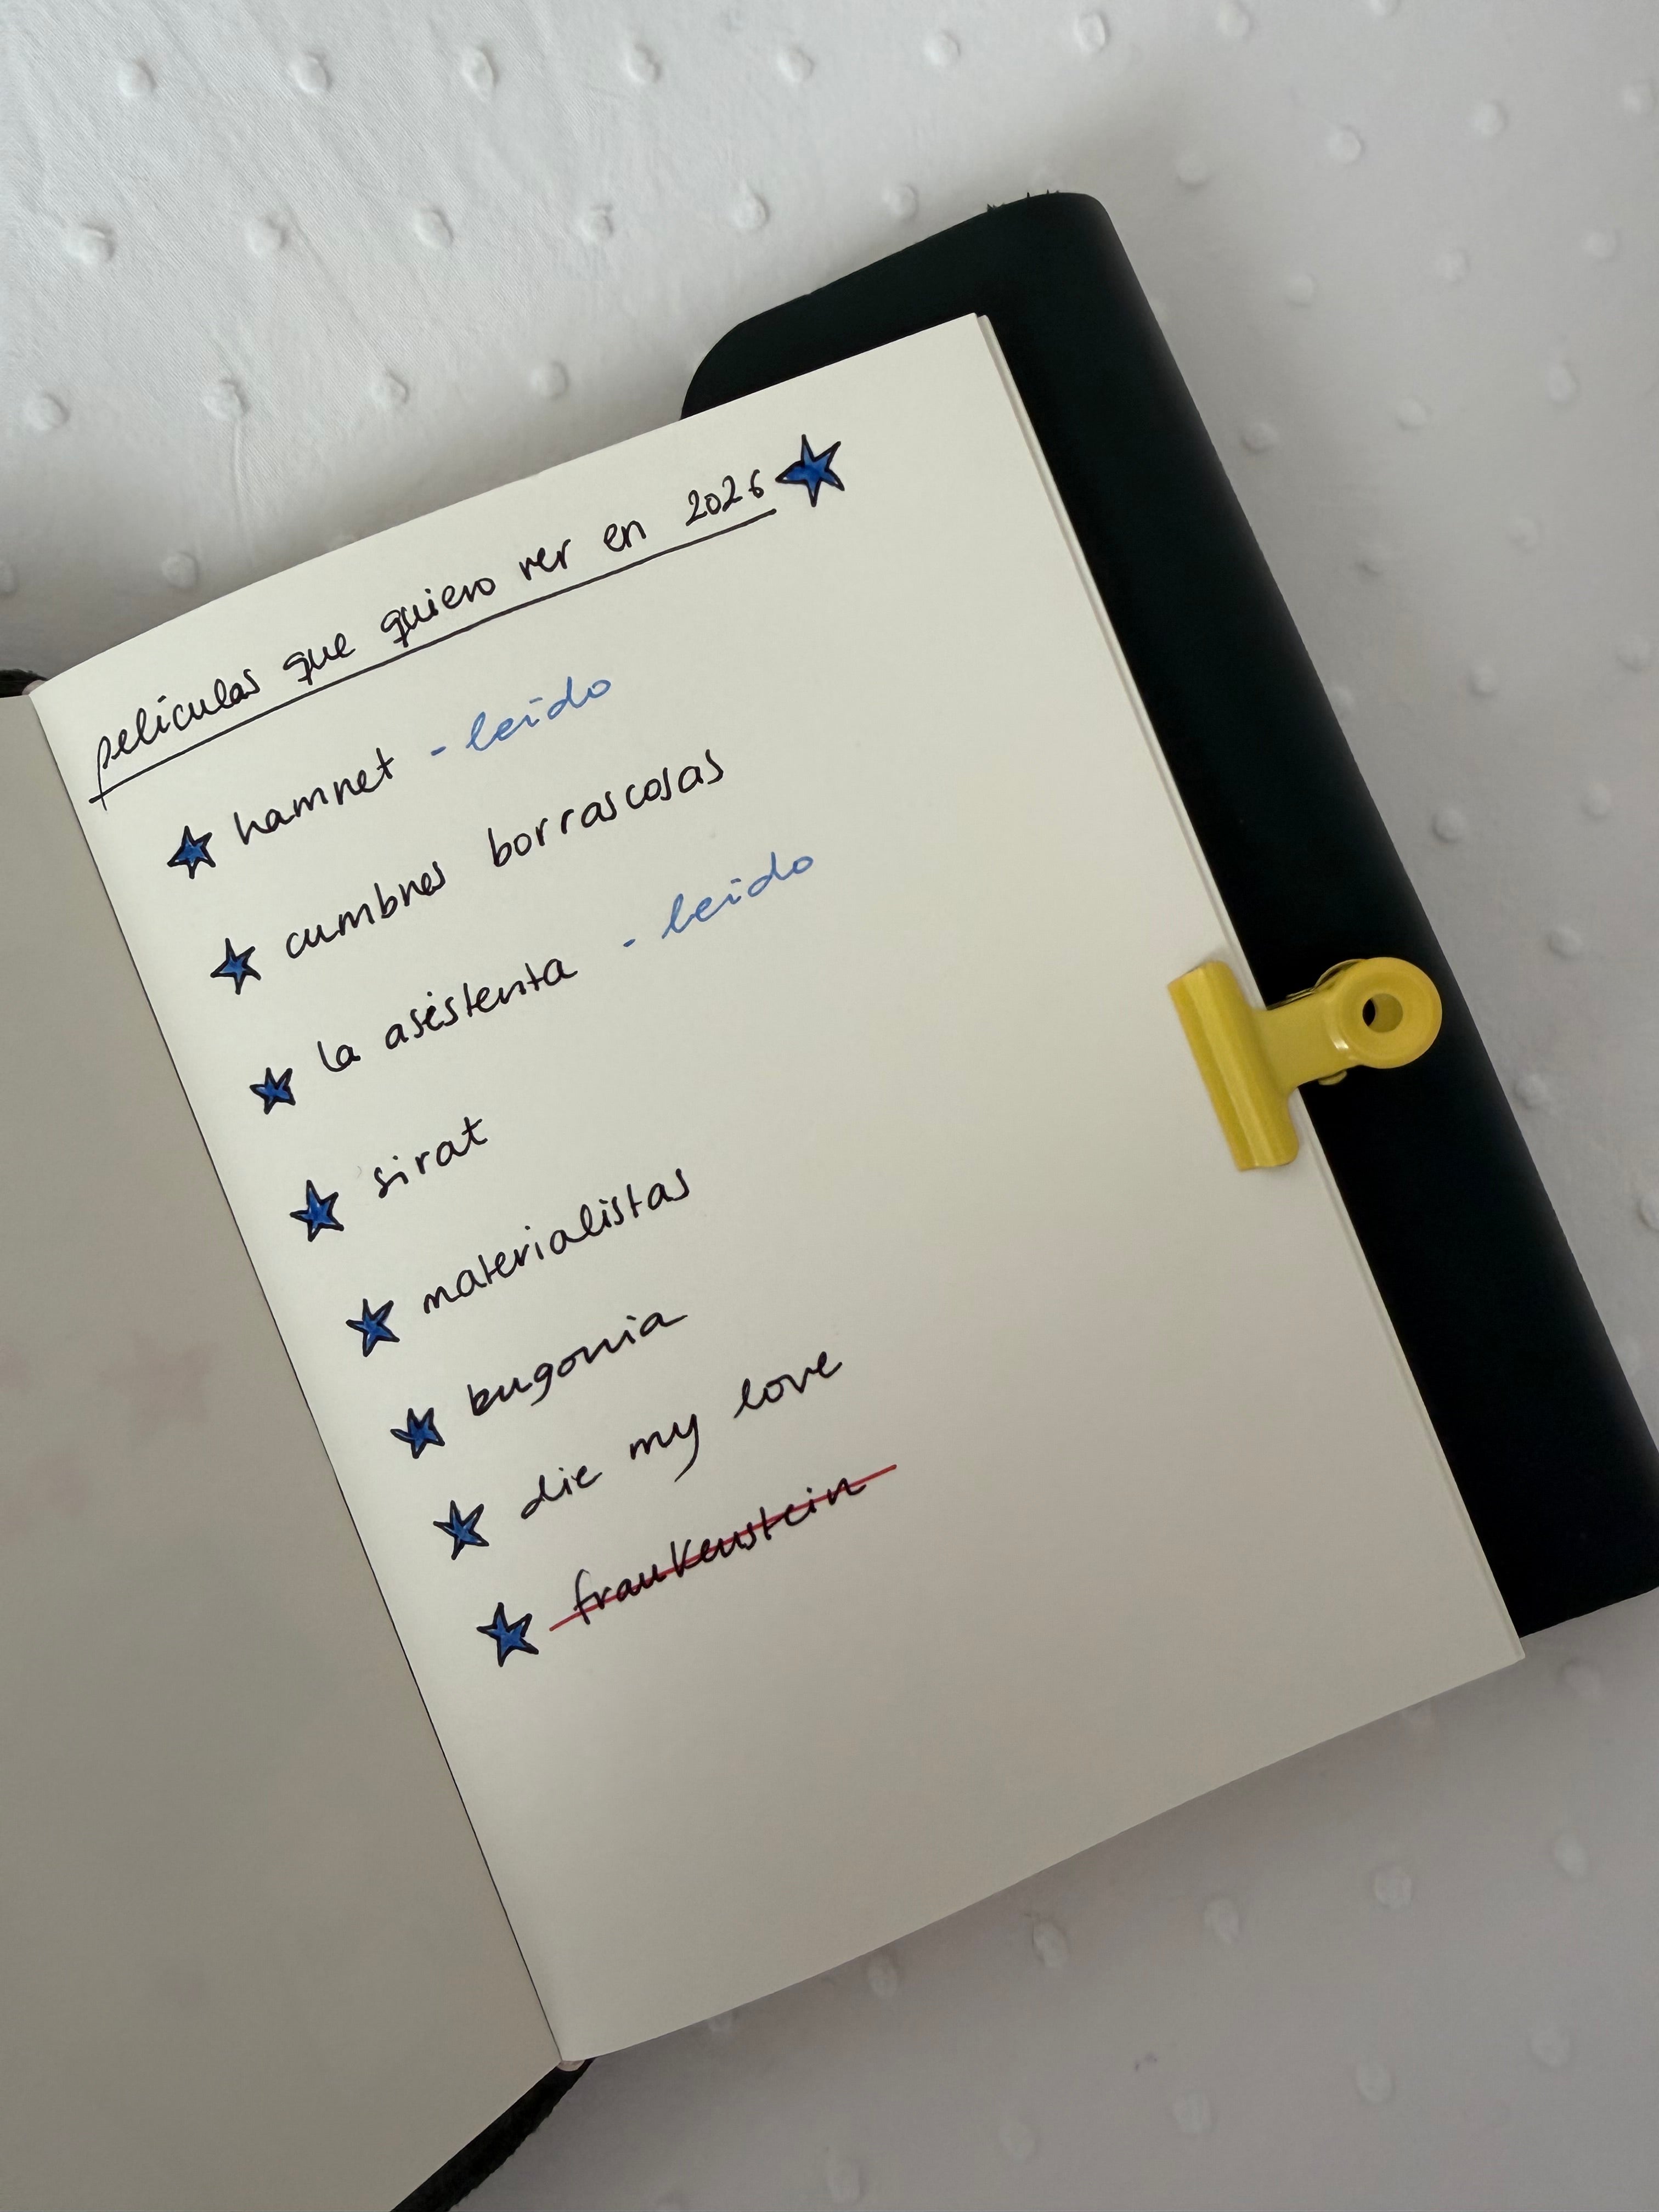 peliculas que quiero ver en 2026
hamnet - leido
cumbres borrascosas
la asistenta - leido
sirat
materialistas
bugonia
die my love
frankenstein